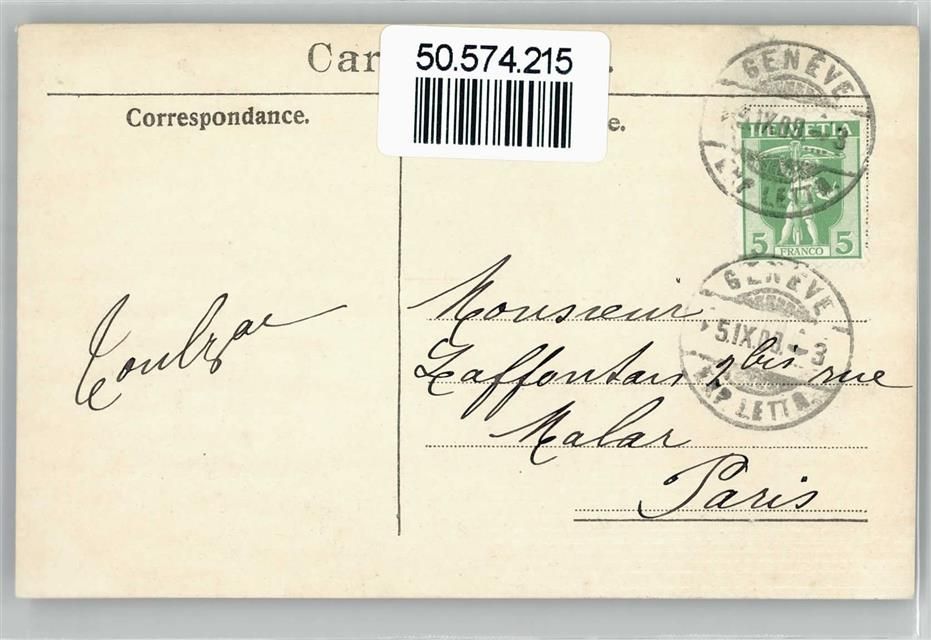 Car
50.574.215
Correspondance.
e.
GENÈVE
5.IX.09.-3
EXP. LETTR.
HELVETIA
5 FRANCO 5
GENÈVE
5.IX.09.-3
EXP. LETTR.
Monsieur
Laffontan 2 bis rue
Malar
Paris
Toulzac